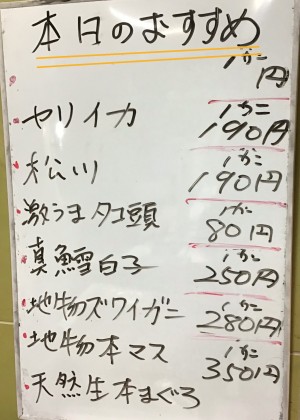 本日のおすすめ
1カン
円
ヤリイカ
1カン
190円
松川
1カン
190円
激うまタコ頭
1カン
80円
真鱈白子
1カン
250円
地物ズワイガニ
1カン
280円
地物本マス
1カン
350円
天然生本まぐろ